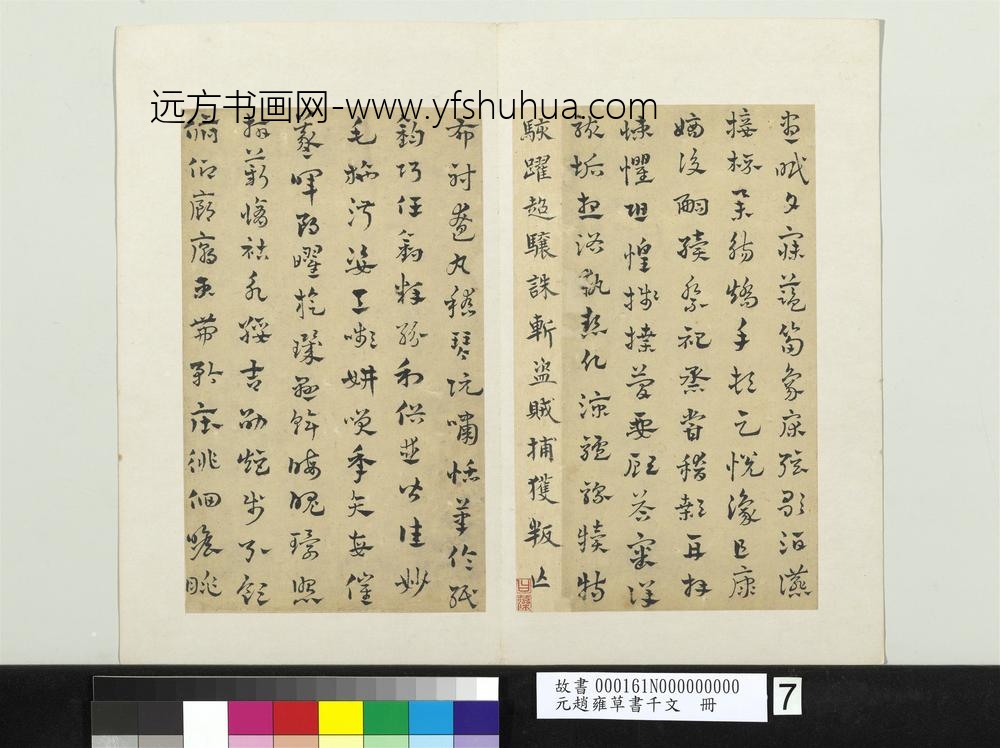 远方书画网-www.yfshuhua.com
晝眠夕寐藍筍象床弦歌酒讌
接杯舉觴矯手頓足悅豫且康
嫡後嗣續祭祀蒸嘗稽顙再拜
悚懼恐惶牋牒簡要顧答審詳
骸垢想浴執熱願涼驢騾犢特
駭躍超驤誅斬盜賊捕獲叛亡
布射遼丸嵇琴阮嘯恬筆倫紙
鈞巧任釣釋紛利俗並皆佳妙
毛施淑姿工顰妍笑年矢每催
羲暉朗曜旋璣懸斡晦魄環照
指薪修祜永綏吉劭矩步引領
俯仰廊廟束帶矜莊徘徊瞻眺
故書 000161N000000000
元趙雍草書千文 冊
7